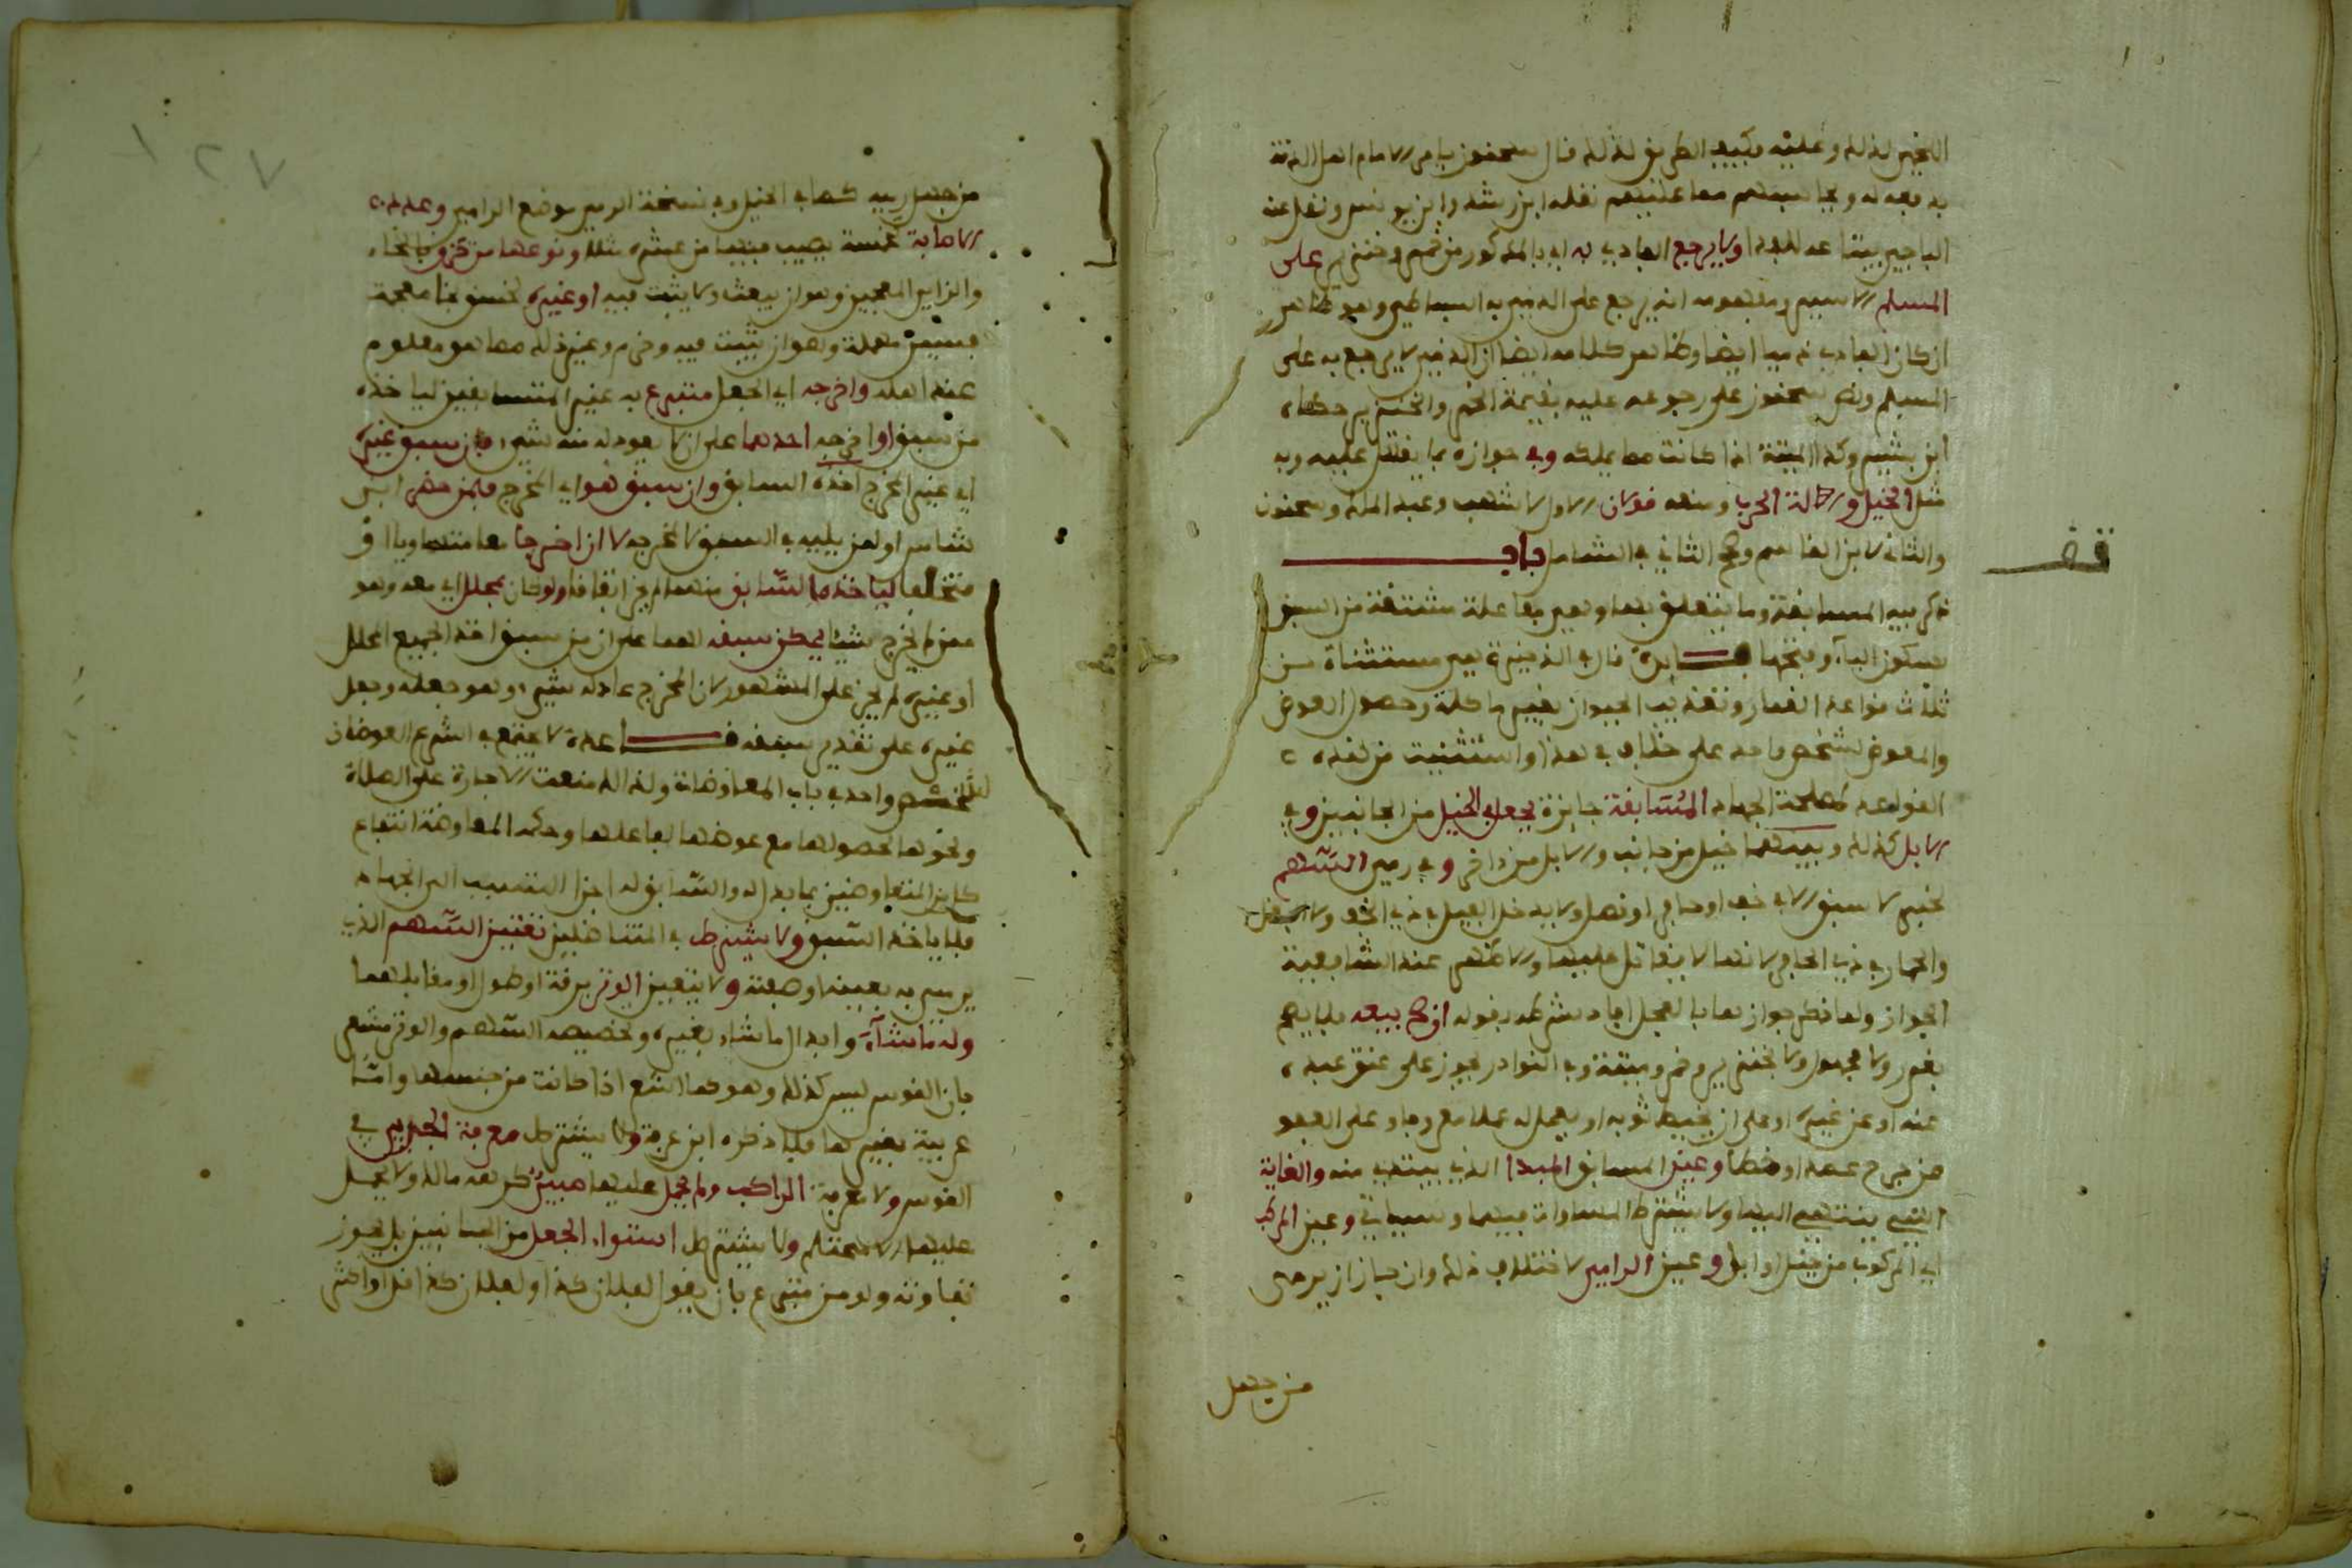 اللخمي لذلك وعليه فيجب الطريق لذلك قال سحنون يامر الامام اهل الذمة
به فعدله ويحاسبهم معا عليهم نقله ابن رشد وابن يونس ونقل عنه
الباجي بيتا عد للفدا ولا يرجع الفادي به اي بالمذكور من خمر وخنزير على
المسلم الاسير ومفهومه انه يرجع على الذمي به البساطي وهو ظاهر
ان كان الفادي ذميا ايضا وظاهر كلامه ايضا ان الذمي لا يرجع به على
المسلم ونص سحنون على رجوعه عليه بقيمة الخمر والخنزير حكاه
ابن بشير وكذا الميتة اذا كانت مما يملكه وفي جوازه بما يقاتل عليه وبه
مثل الخيل والة الحرب ومنعه قولان الاول لاشهب وعبد الملك وسحنون
والثاني لابن القاسم ورجح الثاني في الشامل باب
قف
ذكر فيه المسابقة وما يتعلق بها وهي مفاعلة مشتقة من السبق
بسكون الباء وفتحها فايدة قال في الذخيرة هي مستثناة من
ثلاث قواعد القمار وتعذيب الحيوان لغير ماكلة وحصول العوض
والمعوض لشخص واحد على خلاف في هذا واستثنيت من هذه
القواعد لمصلحة الجهاد المسابقة جائزة بجعل في الخيل من الجانبين وفي
الابل كذلك وبينهما خيل من جانب والابل من اخر وفي رمي السهم
لخبر لا سبق الا في خف او حافر او نصل ولا يدخل الفيل في ذي الخف ولا البغل
والحمار في ذي الحافر لانهما لا يقاتل عليهما والاظهر عند الشافعية
الجواز ولما ذكر جوازها بالجعل افاد شرطه بقوله ان صح بيعه فلا يصح
بغرر ولا مجهول ولا بخنزير وخمر وميتة وفي النوادر يجوز على عتق عبده
عنه او عن غيره او على ان يخيط ثوبه او يعمل له عملا معروفا وعلى العفو
عن جرح عمدا او خطا وعين المسابق المبدا الذي يبتدي منه والغاية
التي ينتهي اليها ولا يشترط المساواة فيهما وسياتي وعين المركب
اي المركوب من خيل او ابل وعين الرامي لاختلاف ذلك وان جاز ان يرمى
من جهل
من جهل رميه كما في الخيل وفي نسخة الرمي موضع الرامي وعدد
الاصابة كخمسة يصيب فيها من عشرة مثلا ونوعها من خزق بالخاء
والزاي المعجمين وهو ان يثقب ولا يثبت فيه او غيره كخسق بخاء معجمة
فسين مهملة وهو ان يثبت فيه وخرم وغير ذلك مما هو معلوم
عند اهله واخرجه اي الجعل متبرع به غير المتسابقين لياخذه
من سبق او اخرجه احدهما على ان لا يعود له منه شيء فان سبق غيره
اي غير المخرج اخذه السابق وان سبق هو اي المخرج فلمن حضر ابن
شاس او لمن يليه في السبق لا لمخرجه لا ان اخرجا معا متساويا او
مختلفا لياخذه السابق منهما لم يجز اتفاقا ولو كان بمحلل اي معه وهو
من لم يخرج شيئا يمكن سبقه لهما على ان من سبق اخذ الجميع المحلل
او غيره لم يجز على المشهور لان المخرج عاد له شيء وهو جعله وجعل
غيره على تقدير سبقه قاعدة لا يجتمع في الشرع العوضان
لشخص واحد في باب المعاوضات ولذا لك منعت الاجارة على الصلاة
ونحوها لحصولها مع عوضها لفاعلها وحكمة المعاوضة انتفاع
كل من المتعاوضين بما بذل له والسابق له اجر التسبب الى الجهاد
فلا ياخذ السبق ولا يشترط في المتناضلين تعيين السهم الذي
يرمي به بعينه او صفته ولا يتعين الوتر برقة او طول او مقابلهما
وله ما شاء وابدال ما شاء بغيره وتخصيصه السهم والوتر مشعر
بان القوس ليس كذلك وهو كما اشعر اذا كانت من جنسها وامّا
عربية بغيرها فلا ذكره ابن عرفة ولا يشترط معرفة الجري في
الفرس ولا معرفة الراكب ولم يحمل عليها صبي وكره مالك ولا يحمل
عليها الا محتلم ولا يشترط استواء الجعل من الجانبين بل يجوز
تفاوته ولو من متبرع بان يقول لفلان كذا ولفلان كذا اقل او اكثر